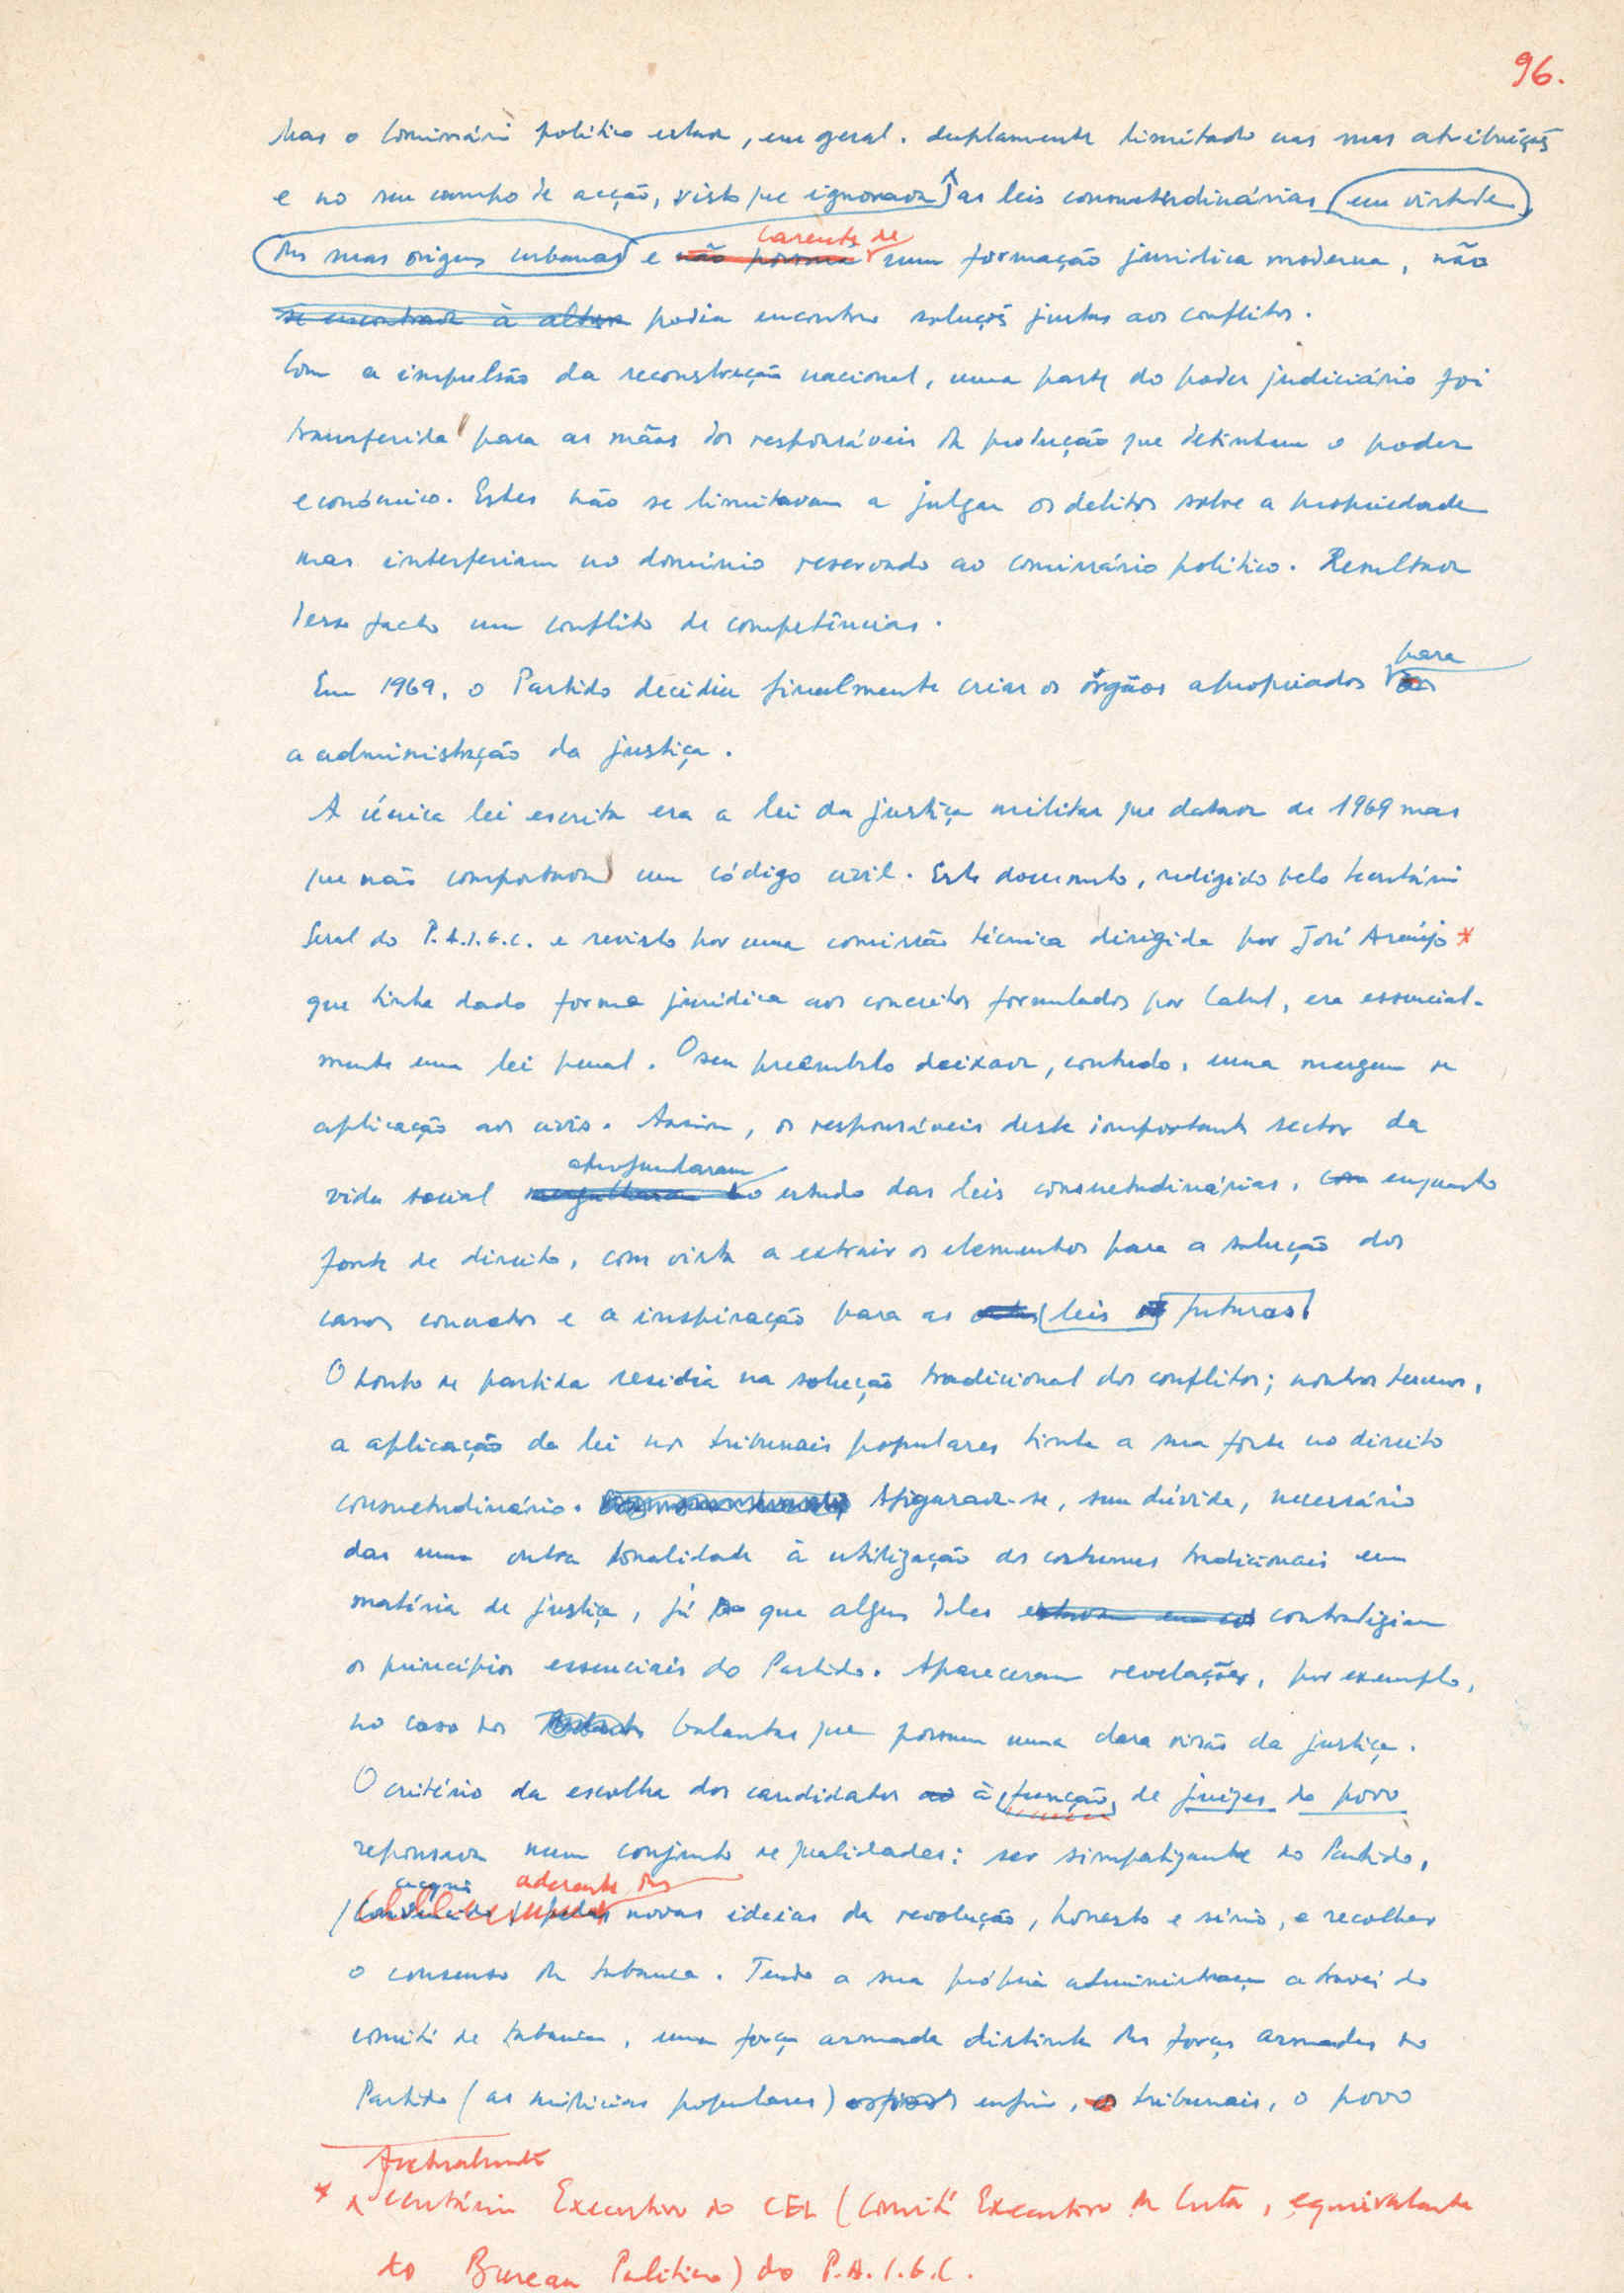 96.
Mas o comissário político estava, em geral, duplamente limitado nas suas atribuições
e no seu campo de acção, visto que ignorava as leis consuetudinárias em virtude
das suas origens urbanas e não possuia carente de uma formação jurídica moderna, não
se encontrava à altura podia encontrar soluções justas aos conflitos.
Com a impulsão da reconstrução nacional, uma parte do poder judiciário foi
transferida para as mãos dos responsáveis da produção que detinham o poder
económico. Estes não se limitavam a julgar os delitos sobre a propriedade
mas interferiam no domínio reservado ao comissário político. Resultava
desse facto um conflito de competências.
Em 1969, o Partido decidiu finalmente criar os órgãos apropriados para
a administração da justiça.
A única lei escrita era a lei da justiça militar que datava de 1969 mas
que não comportava um código civil. Este documento, redigido pelo Secretário
Geral do P.A.I.G.C. e revisto por uma comissão técnica dirigida por José Araújo *
que tinha dado forma jurídica aos conceitos formulados por Cabral, era essencial-
mente uma lei penal. O seu preâmbulo deixava, contudo, uma margem de
aplicação aos civis. Assim, os responsáveis deste importante sector da
vida social mergulharam no aprofundaram o estudo das leis consuetudinárias, com enquanto
fonte de direito, com vista a extrair os elementos para a solução dos
casos concretos e a inspiração para as leis futuras.
O ponto de partida residia na solução tradicional dos conflitos; noutros termos,
a aplicação da lei nos tribunais populares tinha a sua fonte no direito
consuetudinário. Afigurava-se, sem dúvida, necessário
dar uma outra tonalidade à utilização dos costumes tradicionais em
matéria de justiça, já que alguns deles estavam em contradigiam
os princípios essenciais do Partido. Apareceram revelações, por exemplo,
no caso dos balantas que possuem uma clara visão da justiça.
O critério da escolha dos candidatos ao à função de juizes do povo
repousava num conjunto de qualidades: ser simpatizante do Partido,
convencido pelas aderente das novas ideias da revolução, honesto e sério, e recolher
o consenso da tabanca. Tendo a sua própria administração através do
comité de tabanca, uma força armada distinta das forças armadas do
Partido (as milícias populares) enfim, os tribunais, o povo
Actualmente
* Secretário Executivo do CEL (Comité Executivo da Luta, equivalente
ao Bureau Político) do P.A.I.G.C.